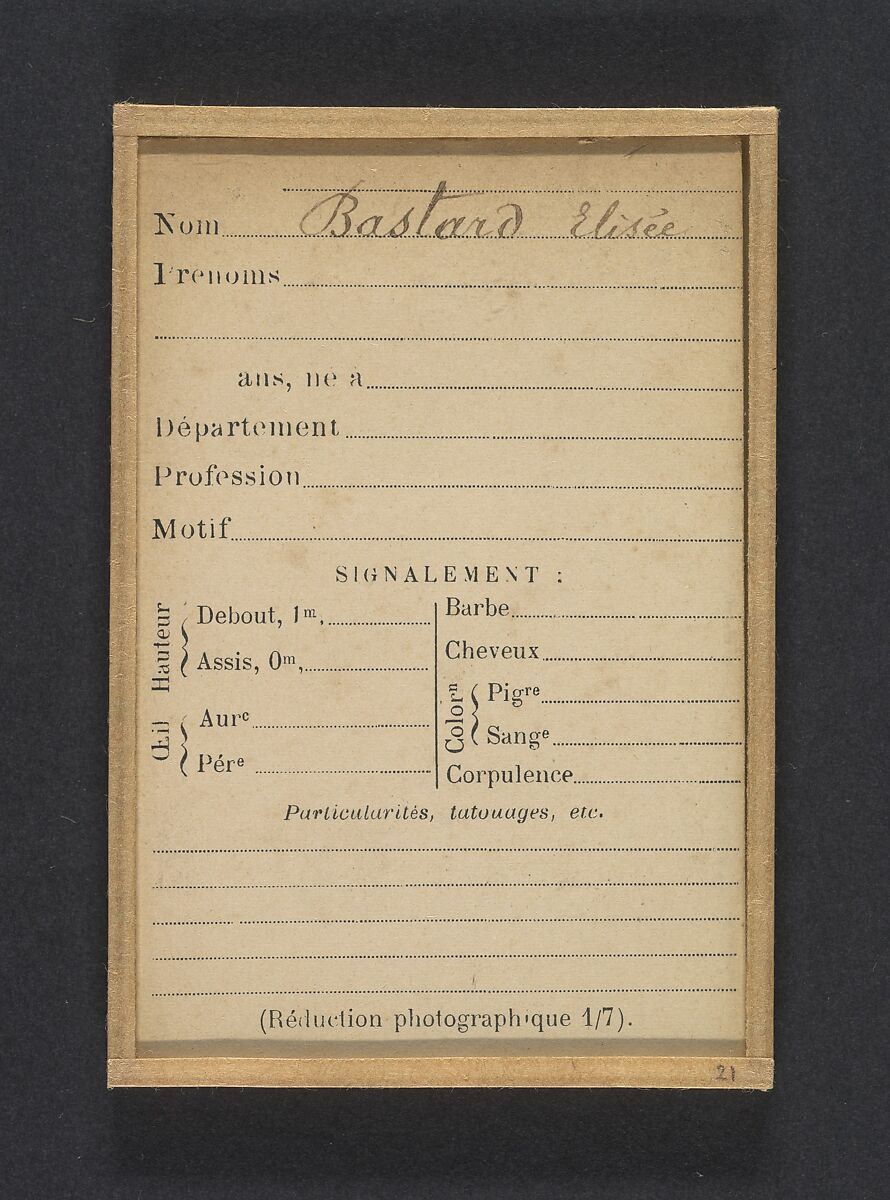 Nom Bastard Elisée
Prénoms
ans, né à
Département
Profession
Motif
SIGNALEMENT :
Hauteur
Debout, 1m,
Assis, 0m,
Œil
Aurc
Pére
Barbe
Cheveux
Colorn
Pigre
Sange
Corpulence
Particularités, tatouages, etc.
(Réduction photographique 1/7).
21